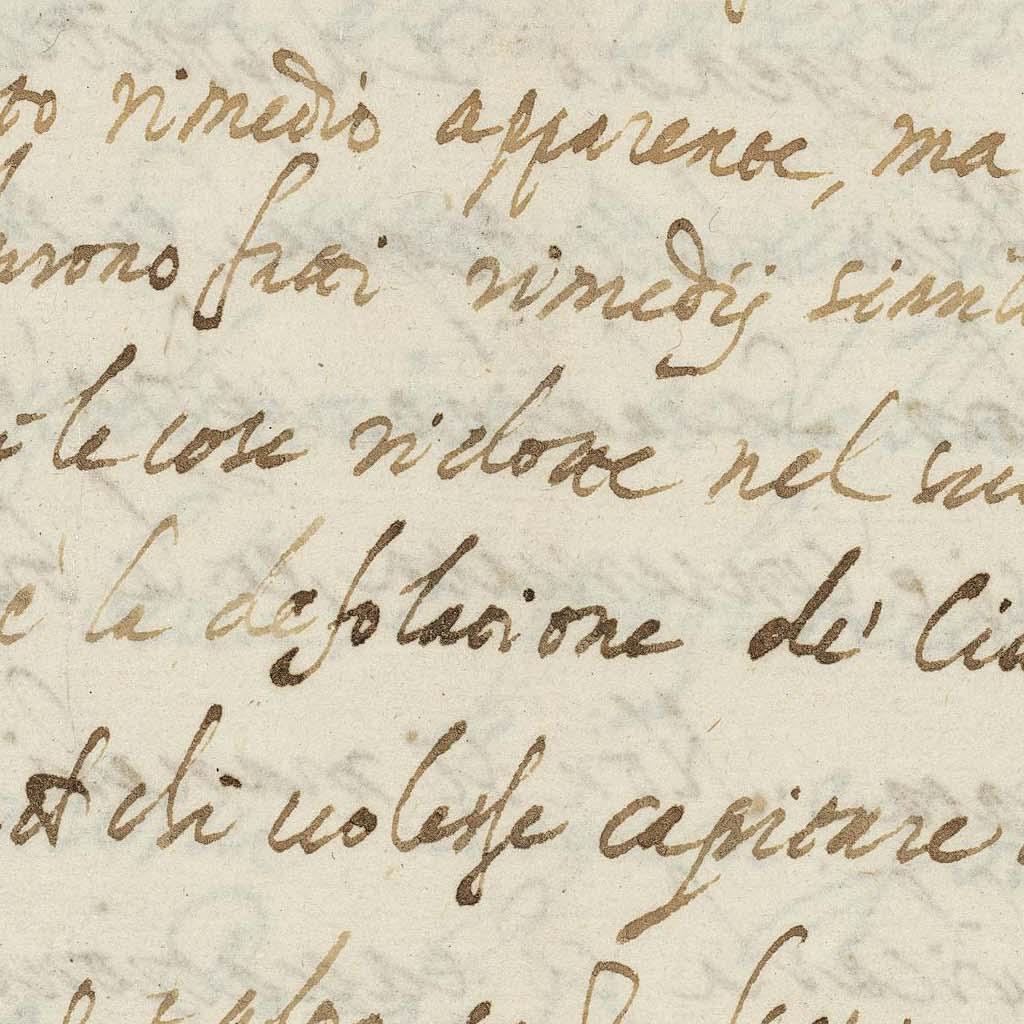 rimedio apparente, ma
furono fatti rimedij
le cose ridotte nel
è la desolatione de'
et chi uolesse capitare